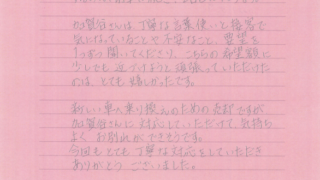 加賀谷さんは丁寧な言葉使いと接客で
気になっていることや不安なこと、要望を
しっかり聞いてくださり、こちらの希望額に
少しでも近づけようと頑張っていただけた
のは、とても嬉しかったです。
新しい車へ乗り換えのための売却ですが
加賀谷さんに対応していただけて、気持ち
よくお別れができそうです。
今回もとても丁寧な対応をしていただき
ありがとうございました。